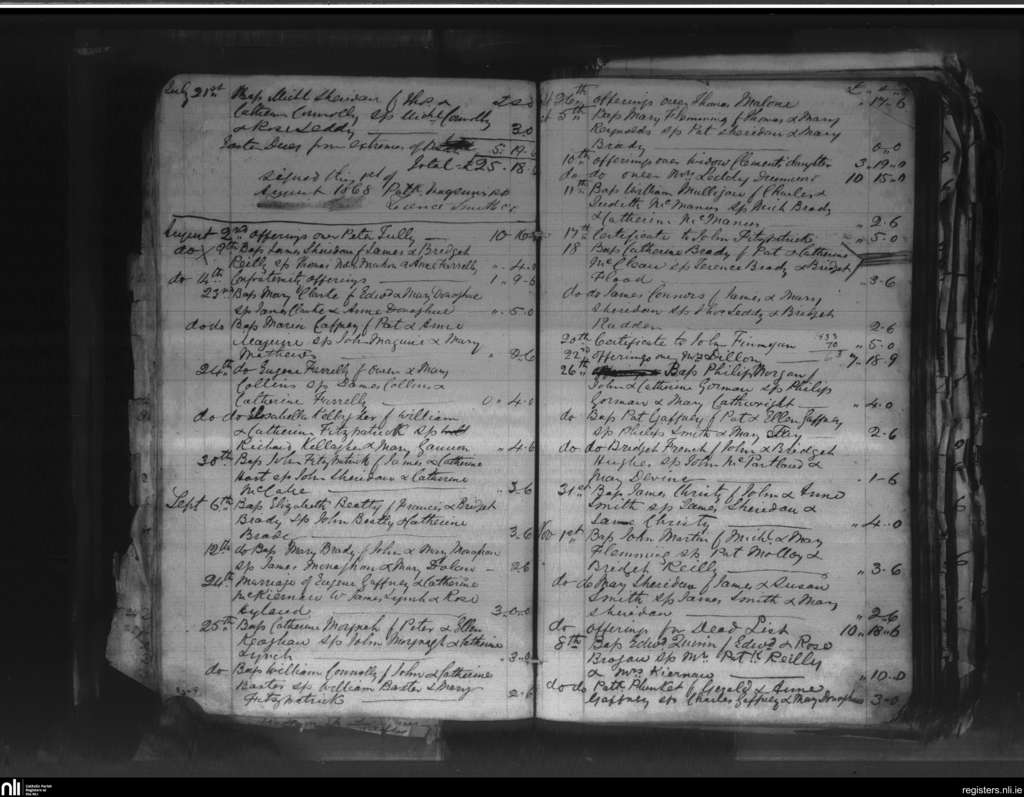 July 21st Bap Michl Sheridan f Thos &
Catherine Connolly Sp Michl Connolly
& Rose Leddy 3.0
Easter Dues from extremes of 5.19.0
Total £25.18
Signed this 1st of
August 1868 Patk Magennis
Terence Smith CC
August 2nd offerings over Peter Tully 10.10.0
do 9th Bap James Sheridan f James & Bridget
Reilly Sp Thomas McMahon & Anne Farrelly " 4.0
do 14th Confraternity offerings 1.9.0
23rd Bap Mary Clarke f Edwd & Mary Donaghue
Sp James Clarke & Anne Donaghue " 5.0
do do Bap Maria Caffrey f Pat & Annie
Maguire Sp John Maguire & Mary
Mathews " 2.6
24th do Eugene Farrelly f Owen & Mary
Collins Sp James Collins &
Catherine Farrelly 0.4.0
do do do Isabella Kellagher f William
& Catherine Fitzpatrick Sp
Richard Kellagher & Mary Gannon " 4.6
30th Bap John Fitzpatrick f James & Catherine
Hart Sp John Sheridan & Catherine
McCabe " 3.6
Sept 6th Bap Elizabeth Beatty f Francis & Bridget
Brady Sp John Beatty & Catherine
Beatty 3.6
12th do Bap Mary Brady f John & Mary Monaghan
Sp James Monaghan & Mary Dolan 2.6
24th Marriage of Eugene Gaffney & Catherine
McKiernan W James Lynch & Rose
Hyland 3.0.0
25th Bap Catherine f Peter & Ellen
Keoghan Sp John & Catherine
Lynch " 3.0
do Bap William Connolly f John & Catherine
Baxter Sp William Baxter & Mary
Fitzpatrick 2.6
£ s d
26th offerings over Thomas Malone " 17.6
5th Bap Mary Flemming f Thomas & Mary
Reynolds Sp Pat Sheridan & Mary
Brady 0.0
10th offerings over widow Clement's daughter 3.19.0
do do over Mrs Leddy Drummer 10 15.0
11th Bap William Mulligan f Charles &
Judith McManus Sp Mich Brady
& Catherine McManus " 2.6
17th Certificate to John Fitzpatrick " 5.0
18 Bap Catherine Brady f Pat & Catherine
McClean Sp Terence Brady & Bridget
Flood " 3.6
do do James Connors f James & Mary
Sheridan Sp Thos Leddy & Bridget
Rudden 2.6
20th Certificate to John Finnegan " 5.0
22nd offerings over Mrs Dillon 7.18.9
26th Bap Philip Morgan f
John & Catherine Gorman Sp Philip
Gorman & Mary Cathwright " 4.0
do Bap Pat Gaffney f Pat & Ellen Gaffney
Sp Philip Smith & Mary 2.6
do do Bridget French f John & Bridget
Hughes Sp John McPartland &
Mary Devine " 1.6
31st Bap James Christy f John & Anne
Smith Sp James Sheridan &
Jane Christy " 4.0
Nov 1st Bap John Martin f Mich & Mary
Flemming Sp Pat Molloy &
Bridget Reilly " 3.6
do do Bap Sheridan f James & Susan
Smith Sp James Smith & Mary
Sheridan " 2.6
do offerings for Dead List 10.18.6
8th Bap Edwd Quinn f Edwd & Rose
Brogan Sp Mr Patk Reilly
& Mrs Kiernan " 10.0
do do Patk Plunket f Gerald & Anne
Gaffney Sp Charles Gaffney & Mary Donaghue 3.0
nli
Catholic Parish
Registers at
the NLI
registers.nli.ie